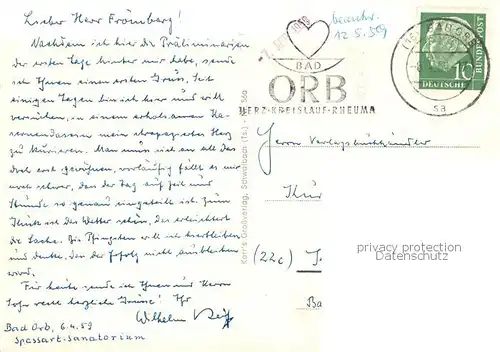 Lieber Herr Frömberg!
Nachdem ich hier die Präliminarien
der ersten Tage hinter mir habe, sende
ich Ihnen einen ersten Gruß. Seit
einigen Tagen bin ich hier und will
versuchen, in einem erholsamen Ka-
sernendasein mein strapaziertes Herz
zu kurieren. Man muß sich an all das
doch erst gewöhnen, vorläufig fällt es mir
noch schwer, daß der Tag auf Zeit und
Stunde so genau eingeteilt ist. Zum
Glück ist das Wetter schön, das erleichtert
die Sache. Bis Pfingsten will ich hierbleiben
und denke, daß der Erfolg nicht ausbleiben
wird.
Für heute sende ich Ihnen und Herrn
recht herzliche Grüße! Ihr
Wilhelm
Bad Orb, 6.4.59
Spessart-Sanatorium
Karr's Großverlag, Schwalbach (Ts.)
12.5.59
BAD
ORB
HERZ-KREISLAUF-RHEUMA
BAD ORB
sa
10
DEUTSCHE
BUNDESPOST
Herrn Verlagsbuchhändler
Kur
(22c)
Ba
privacy protection
Datenschutz